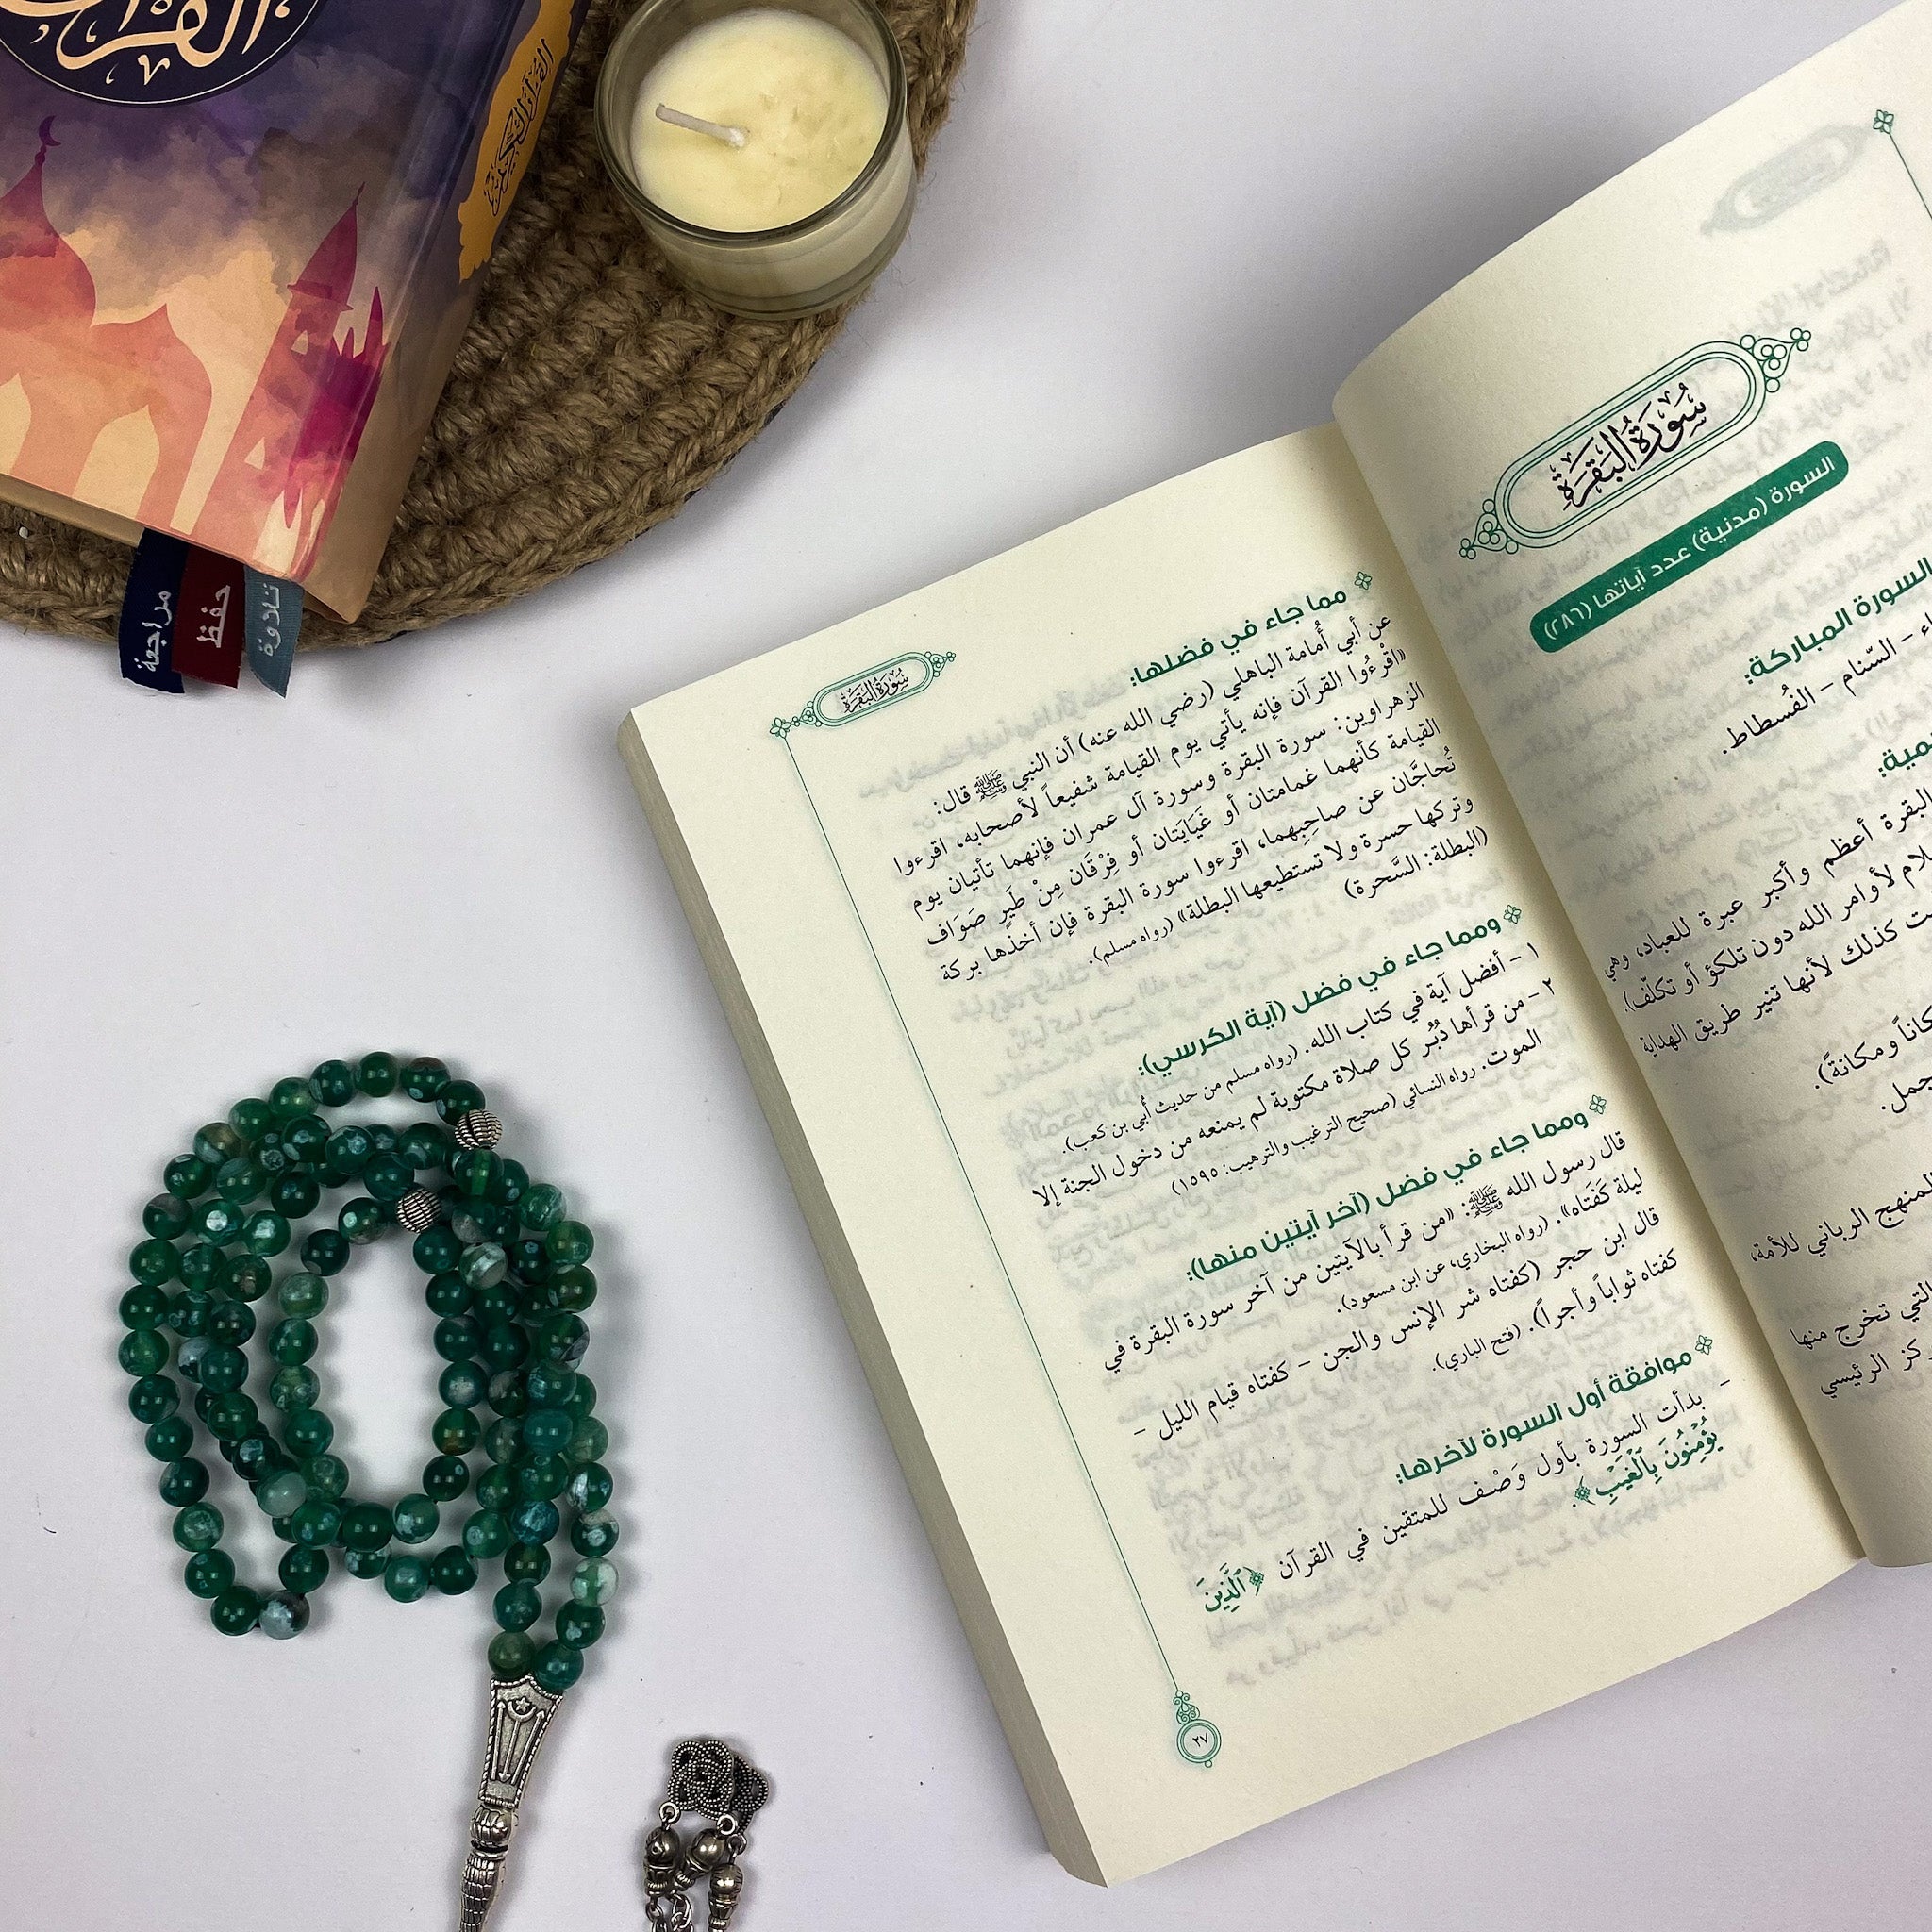 القرآن
القرآن الكريم
مراجعة
حفظ
تلاوة
سورة البقرة
السورة (مدنية) عدد آياتها (٢٨٦)
السورة المباركة:
– السّنام – الفُسطاط.
البقرة أعظم وأكبر عبرة للعباد، وهي
لأوامر الله دون تلكؤ أو تكلّف).
كذلك لأنها تنير طريق الهداية
ومكانةً).
المنهج الرباني للأمة،
التي تخرج منها
الرئيسي
سورة البقرة
مما جاء في فضلها:
عن أبي أُمامة الباهلي (رضي الله عنه) أن النبي ﷺ قال:
«اقْرءُوا القرآن فإنه يأتي يوم القيامة شفيعاً لأصحابه، اقرءوا
الزهراوين: سورة البقرة وسورة آل عمران فإنهما تأتيان يوم
القيامة كأنهما غمامتان أو غَيَايَتان أو فِرْقَان مِنْ طَيرٍ صَوَاف
تُحاجَّان عن صاحِبِهما، اقرءوا سورة البقرة فإن أخذها بركة
وتركها حسرة ولا تستطيعها البطلة» (رواه مسلم).
(البطلة: السَّحرة)
ومما جاء في فضل (آية الكرسي):
١ – أفضل آية في كتاب الله. (رواه مسلم من حديث أُبي بن كعب).
٢ – من قرأها دُبُر كل صلاة مكتوبة لم يمنعه من دخول الجنة إلا
الموت. رواه النسائي (صحيح الترغيب والترهيب: ١٥٩٥)
ومما جاء في فضل (آخر آيتين منها):
قال رسول الله ﷺ: «من قرأ بالآيتين من آخر سورة البقرة في
ليلة كَفَتاه». (رواه البخاري، عن ابن مسعود).
قال ابن حجر (كفتاه شر الإنس والجن – كفتاه قيام الليل –
كفتاه ثواباً وأجراً). (فتح الباري).
موافقة أول السورة لآخرها:
– بدأت السورة بأول وَصْف للمتقين في القرآن ﴿ٱلَّذِينَ
يُؤْمِنُونَ بِٱلْغَيْبِ﴾.
٢٧